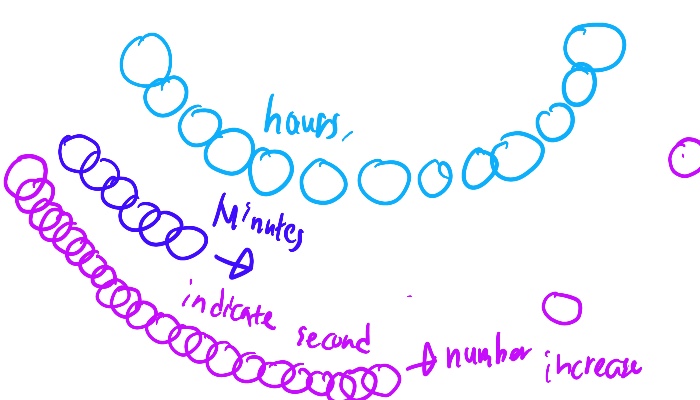 hours,
Minutes
indicate second
number increase